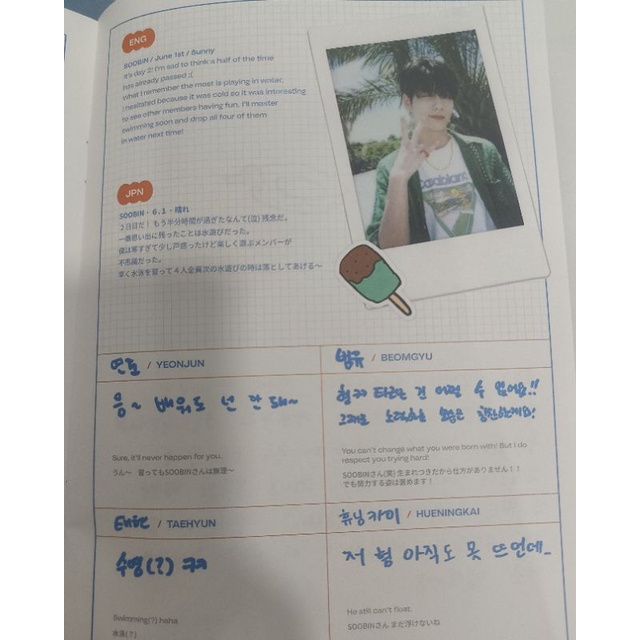 ENG
SOOBIN / June 1st / Sunny
It's day 2! I'm sad to think a half of the time
has already passed :(
What I remember the most is playing in water,
I hesitated because it was cold so it was interesting
to see other members having fun, I'll master
swimming soon and drop all four of them
in water next time!
casablanca
JPN
SOOBIN・6.1・晴れ
2日目だ！もう半分時間が過ぎたなんて(泣) 残念だ。
一番思い出に残ったことは水遊びだった。
僕は寒すぎて少し戸惑ったけど楽しく遊ぶメンバーが
不思議だった。
早く水泳を習って4人全員次の水遊びの時は落としてあげる～
연준 / YEONJUN
응~ 배워도 넌 안 돼~
Sure, it'll never happen for you.
うん～ 習ってもSOOBINさんは無理～
범규 / BEOMGYU
형 타고난 건 어쩔 수 없어요!!
그래도 노력하는 모습은 칭찬할게요!
You can't change what you were born with! But I do
respect you trying hard!
SOOBINさん(笑) 生まれつきだから仕方がありません！！
でも努力する姿は褒めます！
태현 / TAEHYUN
수영(?) ㅋㅋ
Swimming(?) haha
水泳(？)
휴닝카이 / HUENINGKAI
저 형 아직도 못 뜨던데_
He still can't float.
SOOBINさん まだ浮けないね